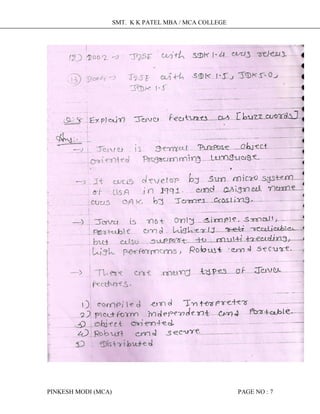 SMT. K K PATEL MBA / MCA COLLEGE
12) 2002 → J2SE with SDK 1.4 was releas
13) 2004 → J2SE with SDK 1.5, JDK 5.0,
JDK 1.5
Q:3 Explain Java features as [buzzwords]
Ans:-
→ Java is general Purpose Object
oriented Programming Lunguage.
→ It was develop by Sun micro system
of USA in 1991. and Original name
was OAK by James Gosling.
→ Java is not only simple, small,
portable and higherly
but also support to multi treading,
high performans, Robust and secure.
→ There are many types of Java
features.
1) compiled and Interpreter
2) platform independent and Portable.
3) object oriented
4) Robust and secure
5) Distributed
PINKESH MODI (MCA) PAGE NO : 7